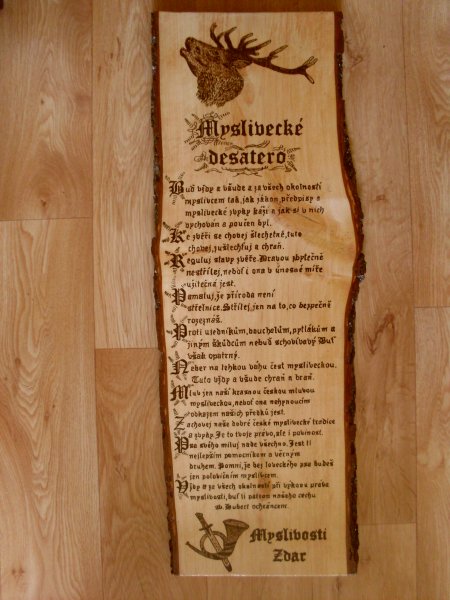 Myslivecké
desatero
Buď vždy a všude a za všech okolností
myslivcem tak, jak zákon, předpisy a
myslivecké zvyky káží a jak si v nich
vychován a poučen byl.
Ke zvěři se chovej šlechetně, tuto
chovej, zušlechťuj a chraň.
Reguluj stavy zvěře. Dravou zbytečně
nestřílej, neboť i ona v únosné míře
užitečná jest.
Pamatuj, že příroda není
střelnice. Střílej jen na to, co bezpečně
rozeznáš.
Proti vjedníkům, pytlákům a
jiným škůdcům nebuď schovívavý. Buď
však opatrný.
Neber na lehkou váhu čest mysliveckou.
Tuto vždy a všude chraň a braň.
Mluv jen naší krásnou českou mluvou
mysliveckou, neboť ona nehynoucím
odkazem našich předků jest.
Zachovej naše dobré české myslivecké tradice
a zvyky. Je to tvoje právo, ale i povinost.
Psa svého miluj nade všechno. Jest ti
nejlepším pomocníkem a věrným
druhem. Pomni, že bez loveckého psa budeš
jen polovičním myslivcem.
Vždy a za všech okolností při výkonu práva
myslivosti, buť ti patron našeho cechu
sv. Hubert ochráncem.
Myslivosti
Zdar